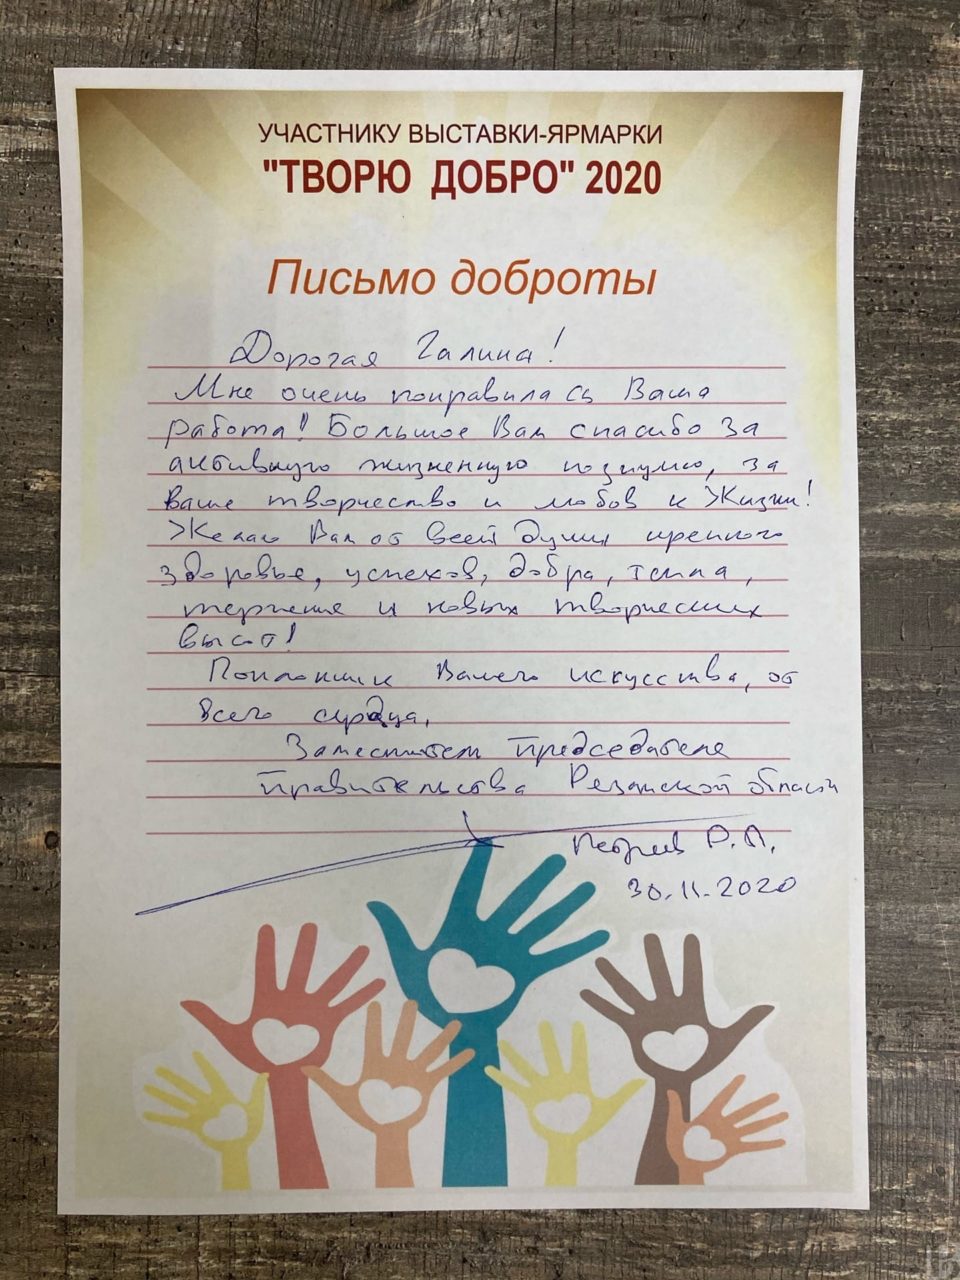 УЧАСТНИКУ ВЫСТАВКИ-ЯРМАРКИ
"ТВОРЮ ДОБРО" 2020
Письмо доброты
Дорогая Галина!
Мне очень понравилась Ваша
работа! Большое Вам спасибо за
активную жизненную позицию, за
Ваше творчество и любов к Жизни!
Желаю Вам от всей души крепкого
здоровье, успехов, добра, тепла,
терпения и новых творческих
высот!
Поклонник Вашего искусства, от
всего сердца,
Заместитель Председателя
Правительства Рязанской области
Р.П.
30.11.2020